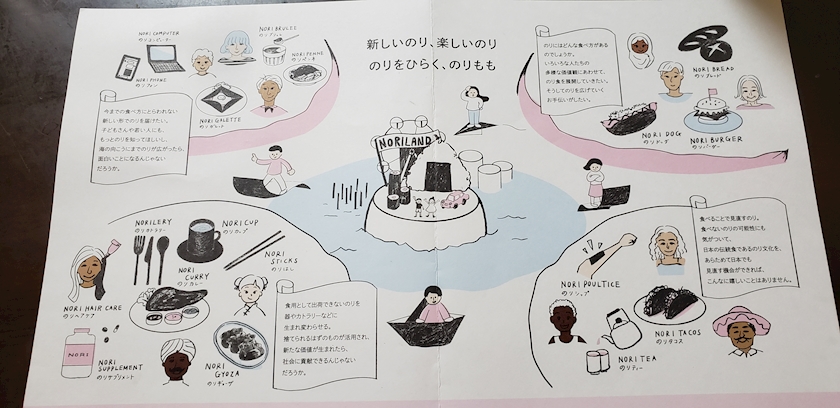 新しいのり、楽しいのり
のりをひらく、のりもも
NORI COMPUTER
のりコンピューター
NORI PHONE
のりフォン
NORI BRULEE
のりブリュレ
NORI PENNE
のりペンネ
NORI GALETTE
のりガレット
今までの食べ方にとらわれない
新しい形でのりを届けたい。
子どもさんや若い人にも、
もっとのりを知ってほしいし、
海の向こうにまでのりが広がったら、
面白いことになるんじゃない
だろうか。
NORILAND
のりにはどんな食べ方がある
のでしょうか。
いろいろな人たちの
多様な価値観にあわせて、
のり食を展開していきたい。
そうしてのりを広げていく
お手伝いがしたい。
NORI BREAD
のりブレッド
NORI DOG
のりドッグ
NORI BURGER
のりバーガー
NORILERY
のりカトラリー
NORI CUP
のりカップ
NORI
STICKS
のりはし
NORI
CURRY
のりカレー
NORI HAIR CARE
のりヘアケア
NORI
NORI
SUPPLEMENT
のりサプリメント
NORI
GYOZA
のりギョーザ
食用として出荷できないのりを
器やカトラリーなどに
生まれ変わらせる。
捨てられるはずのものが活用され、
新たな価値が生まれたら、
社会に貢献できるんじゃない
だろうか。
食べることで見直すのり。
食べないのりの可能性にも
気がついて、
日本の伝統食であるのり文化を、
あらためて日本でも
見直す機会ができれば、
こんなに嬉しいことはありません。
NORI POULTICE
のりシップ
NORI TACOS
のりタコス
NORI TEA
のりティー